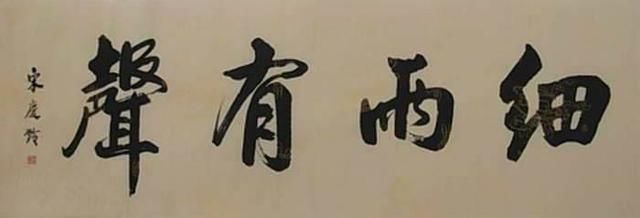 細雨有聲
宋慶齡